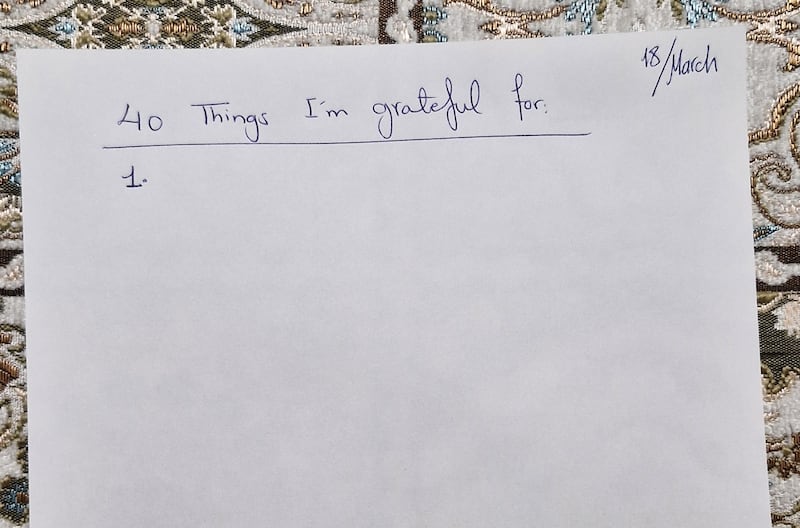 18/March
40 Things I'm grateful for:
1.